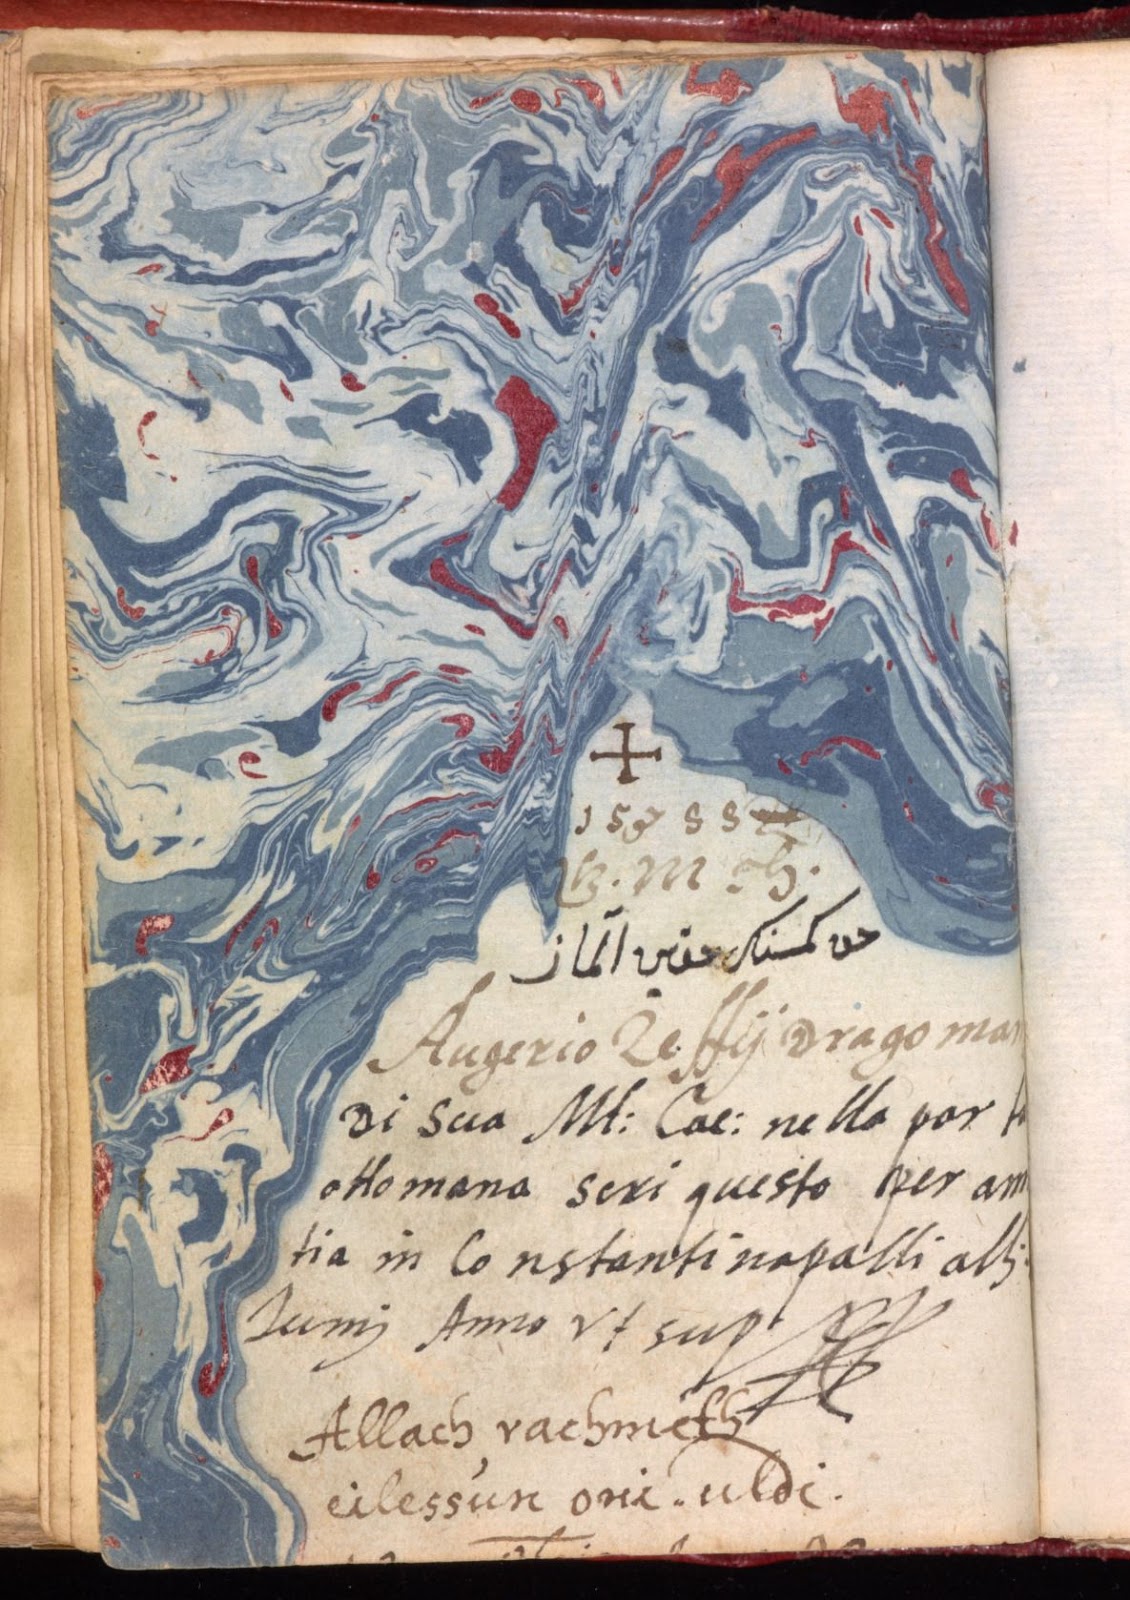 1588
M
حق كمسنك حقين آلماز
Augerio Zeffij Dragoman
di sua Mt: Cae: nella porta
ottomana scri questo per am
tia in Constantinopalli alli
Iunij Anno vt sup
Allach rachmeth
eilessun oni .. uldi.